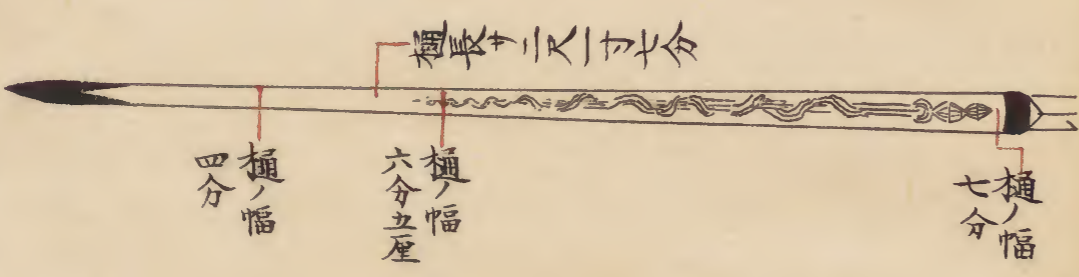 樋長サ二尺一寸七分
樋ノ幅
七分
樋ノ幅
六分五厘
樋ノ幅
四分